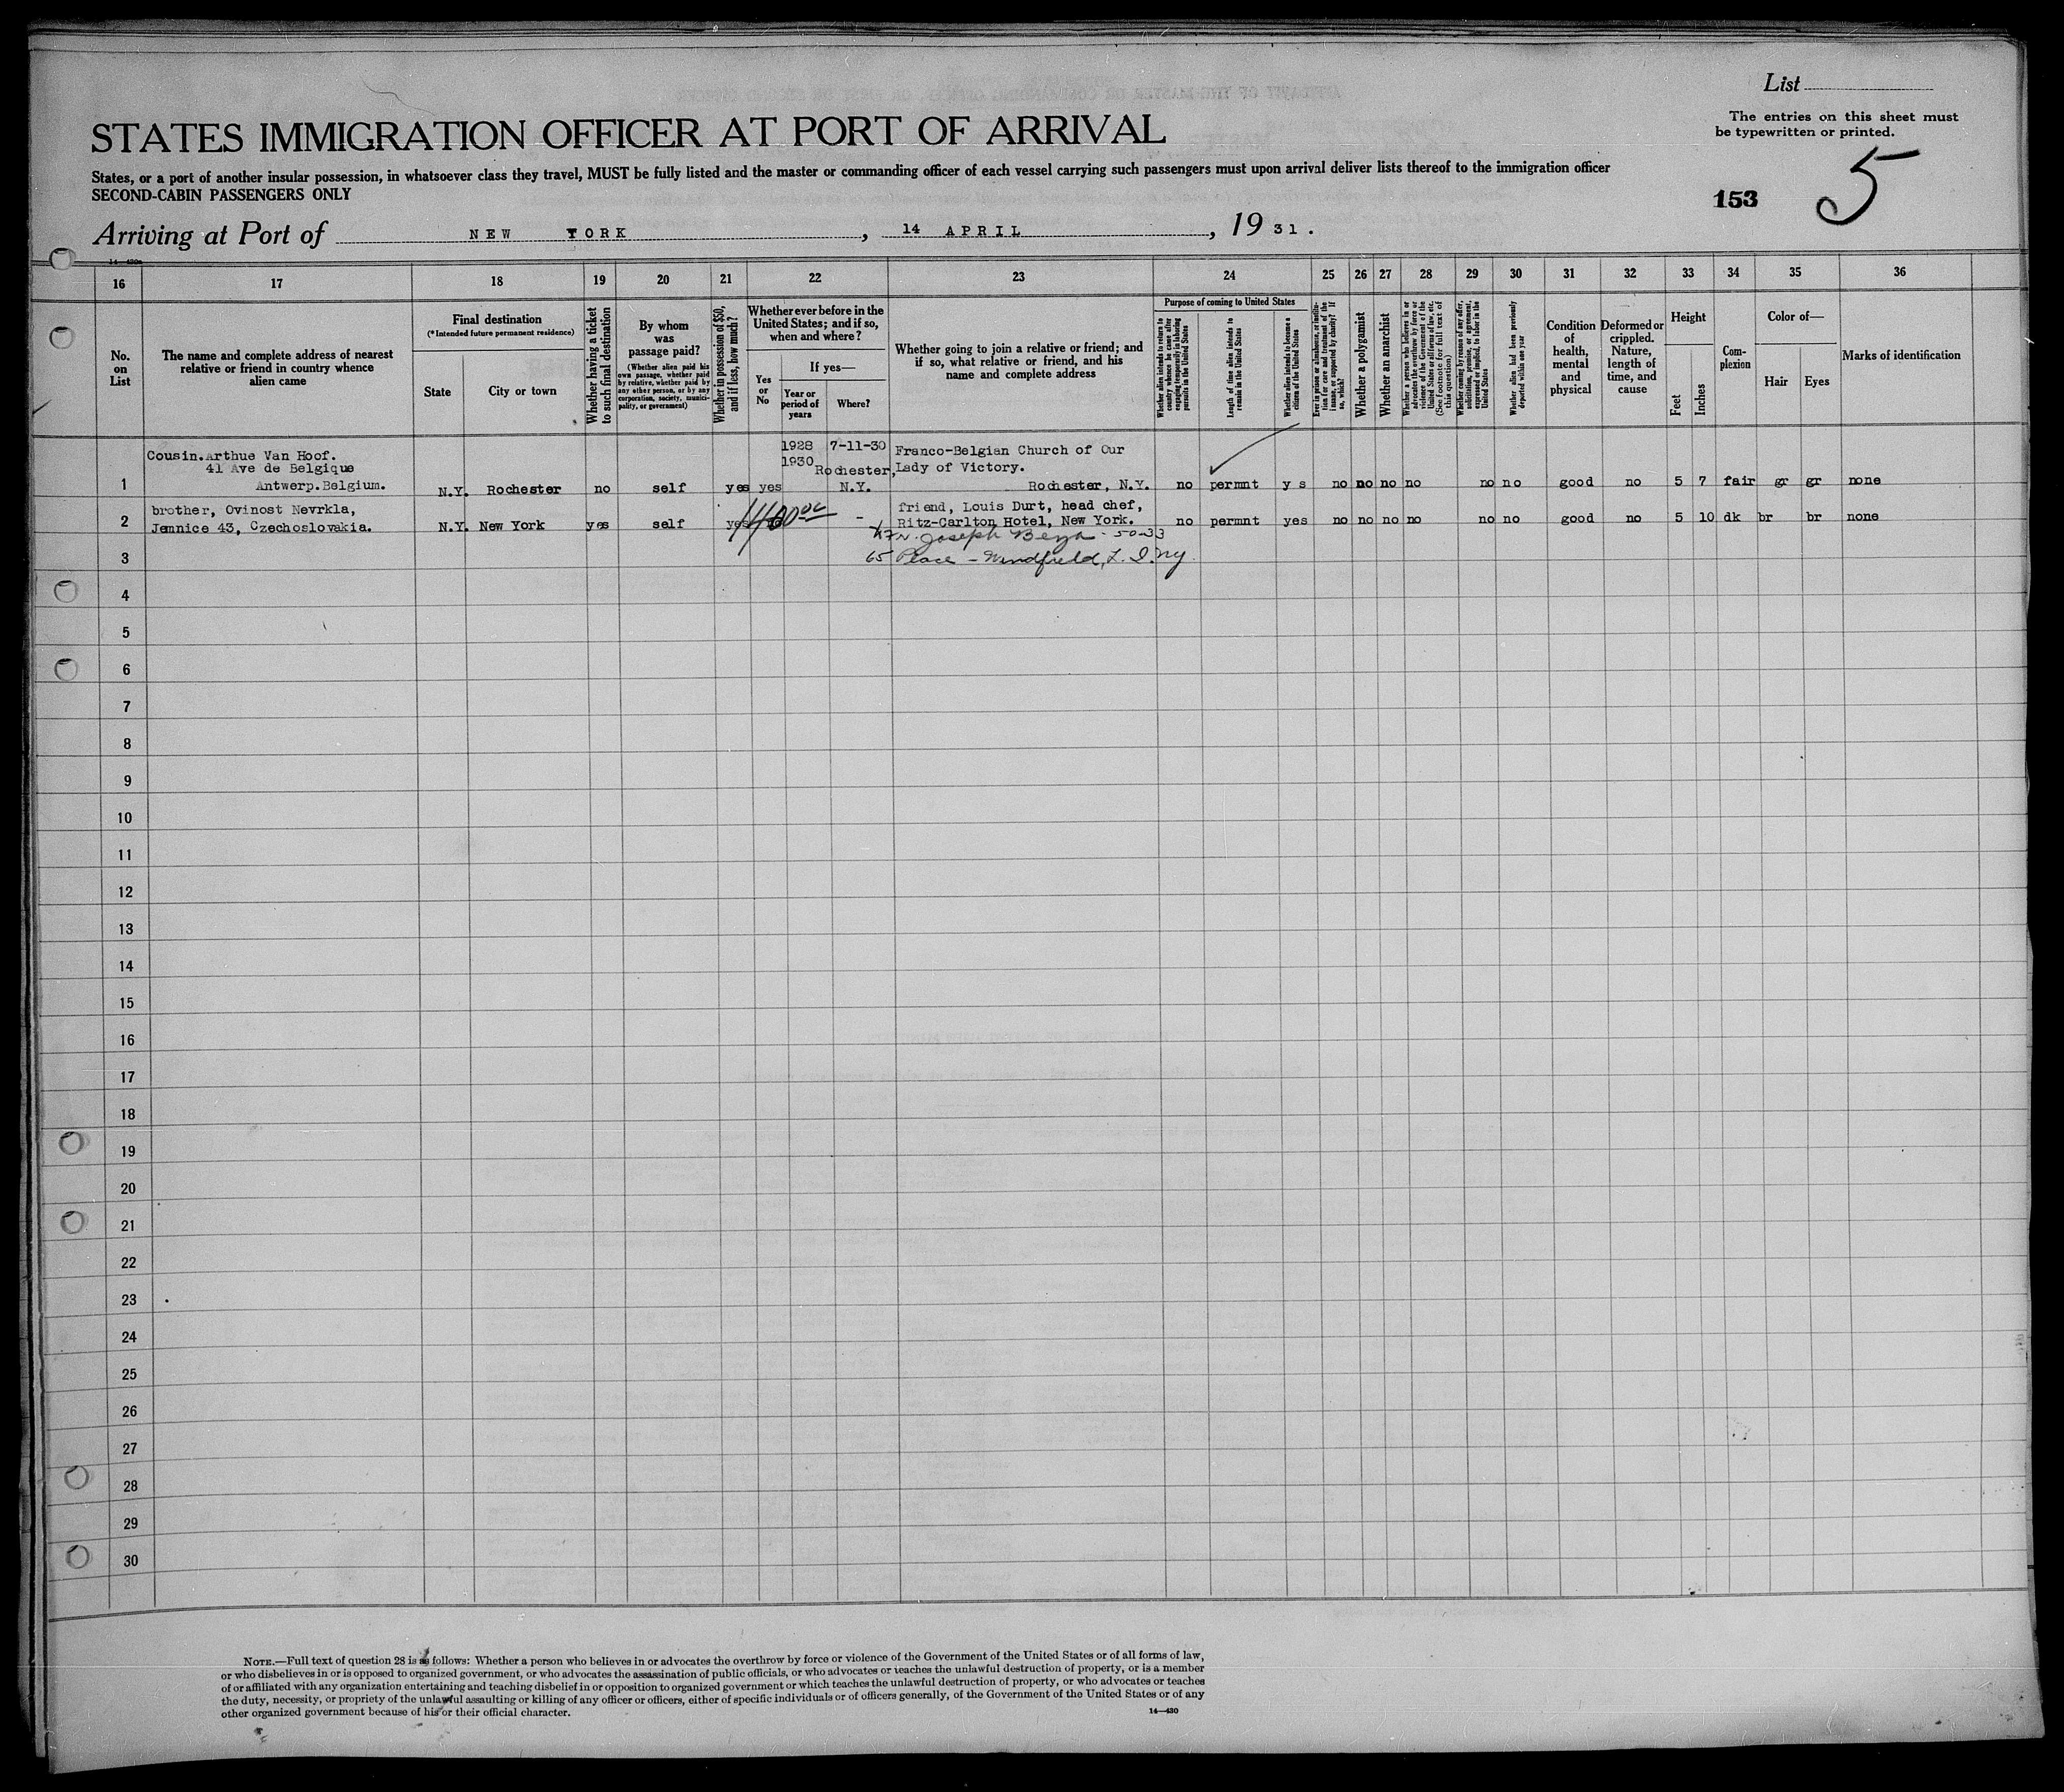 List
The entries on this sheet must
be typewritten or printed.
STATES IMMIGRATION OFFICER AT PORT OF ARRIVAL
States, or a port of another insular possession, in whatsoever class they travel, MUST be fully listed and the master or commanding officer of each vessel carrying such passengers must upon arrival deliver lists thereof to the immigration officer
SECOND-CABIN PASSENGERS ONLY
153
5
Arriving at Port of NEW YORK, 14 APRIL, 19 31.
16 17 18 19 20 21 22 23 24 25 26 27 28 29 30 31 32 33 34 35 36
No.
on
List
The name and complete address of nearest
relative or friend in country whence
alien came
Final destination
(*Intended future permanent residence)
State
City or town
Whether having a ticket
to such final destination
By whom
was
passage paid?
(Whether alien paid his
own passage, whether paid
by relative, whether paid by
any other person, or by any
corporation, society, munici-
pality, or government)
Whether in possession of $50,
and if less, how much?
Whether ever before in the
United States; and if so,
when and where?
Yes
or
No
If yes—
Year or
period of
years
Where?
Whether going to join a relative or friend; and
if so, what relative or friend, and his
name and complete address
Purpose of coming to United States
Whether alien intends to return to
country whence he came after
engaging temporarily in laboring
pursuits in the United States
Length of time alien intends to
remain in the United States
Whether alien intends to become a
citizen of the United States
Ever in prison or almshouse, or institu-
tion for care and treatment of the
insane, or supported by charity? If
so, which?
Whether a polygamist
Whether an anarchist
Whether a person who believes in or
advocates the overthrow by force or
violence of the Government of the
United States or all forms of law, etc.
(See footnote for full text of
this question)
Whether coming by reason of any offer,
solicitation, promise, or agreement,
expressed or implied, to labor in the
United States
Whether alien had been previously
deported within one year
Condition
of
health,
mental
and
physical
Deformed or
crippled.
Nature,
length of
time, and
cause
Height
Feet
Inches
Com-
plexion
Color of—
Hair
Eyes
Marks of identification
Cousin.Arthue Van Hoof.
41 Ave de Belgique
Antwerp.Belgium.
1 N.Y. Rochester no self yes yes
1928 7-11-30
1930 Rochester,
N.Y.
Franco-Belgian Church of Our
Lady of Victory.
Rochester, N.Y.
no permnt y s no no no no no no good no 5 7 fair gr gr none
brother, Ovinost Nevrkla,
Jennice 43, Czechoslovakia.
2 N.Y. New York yes self yes -
friend, Louis Durt, head chef,
Ritz-Carlton Hotel, New York.
no permnt yes no no no no no no good no 5 10 dk br br none
Joseph 50-33
65 Place - Windfield, L. I. ny
3
4
5
6
7
8
9
10
11
12
13
14
15
16
17
18
19
20
21
22
23
24
25
26
27
28
29
30
NOTE.—Full text of question 28 is as follows: Whether a person who believes in or advocates the overthrow by force or violence of the Government of the United States or of all forms of law,
or who disbelieves in or is opposed to organized government, or who advocates the assassination of public officials, or who advocates or teaches the unlawful destruction of property, or is a member
of or affiliated with any organization entertaining and teaching disbelief in or opposition to organized government or which teaches the unlawful destruction of property, or who advocates or teaches
the duty, necessity, or propriety of the unlawful assaulting or killing of any officer or officers, either of specific individuals or of officers generally, of the Government of the United States or of any
other organized government because of his or their official character.
14—430